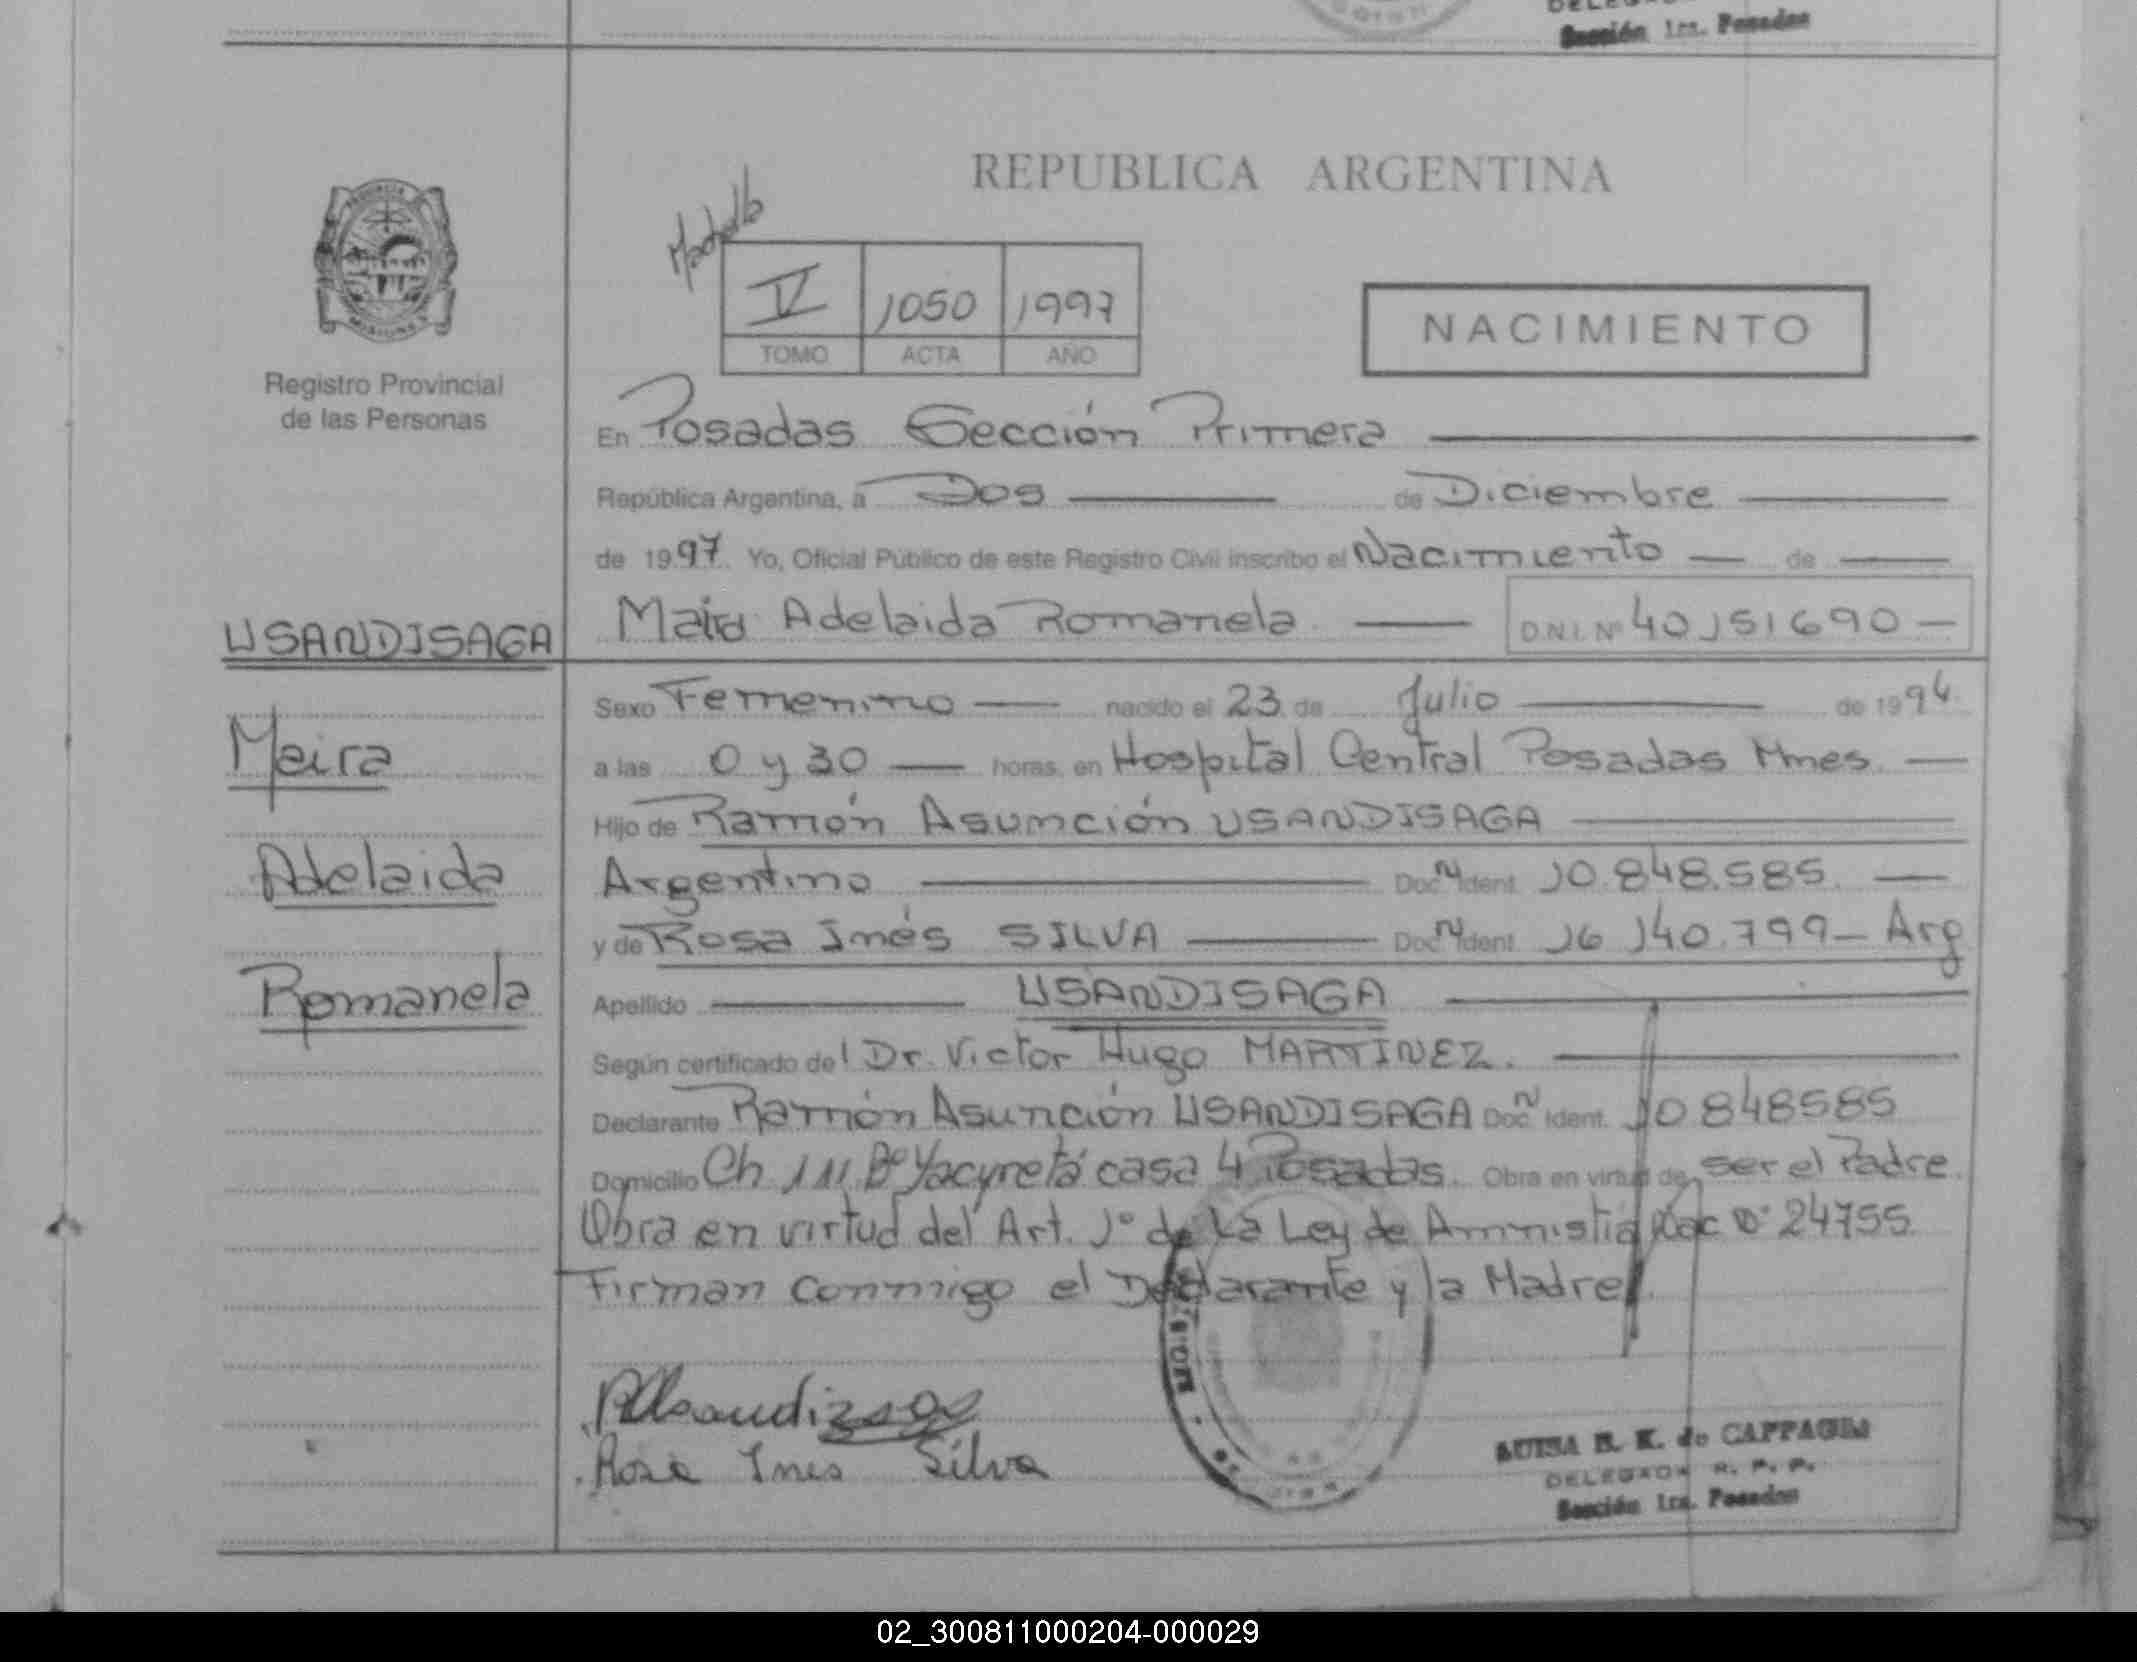 Sección 1ra. Posadas
REPUBLICA ARGENTINA
V 1050 1997
TOMO ACTA AÑO
NACIMIENTO
Registro Provincial
de las Personas
En Posadas Sección Primera
República Argentina, a Dos de Diciembre
de 1997 Yo, Oficial Público de este Registro Civil inscribo el Nacimiento de
USANDISAGA
Maira Adelaida Romanela D.N.I. Nº 40151690
Sexo Femenino nacido el 23 de Julio de 1994
Maira
a las 0 y 30 horas, en Hospital Central Posadas Mnes.
Hijo de Ramón Asunción USANDISAGA
Adelaida
Argentino Doc. N Ident. 10.848.585.
y de Rosa Inés SILVA Doc. N Ident. 16 140.799 - Arg
Romanela
Apellido USANDISAGA
Según certificado del Dr. Victor Hugo MARTINEZ.
Declarante Ramón Asunción USANDISAGA Doc. N Ident. 10848585
Domicilio Ch 111 Bº Yacyretá casa 4 Posadas. Obra en virtud de ser el Padre.
Obra en virtud del Art. 1º de La Ley de Amnistia Nac Nº 24755
Firman Conmigo el Declarante y la Madre.
Rosa Ines Silva
LUISA B. K. de
DELEGADA R. P. P.
Sección 1ra. Posadas
02_300811000204-000029